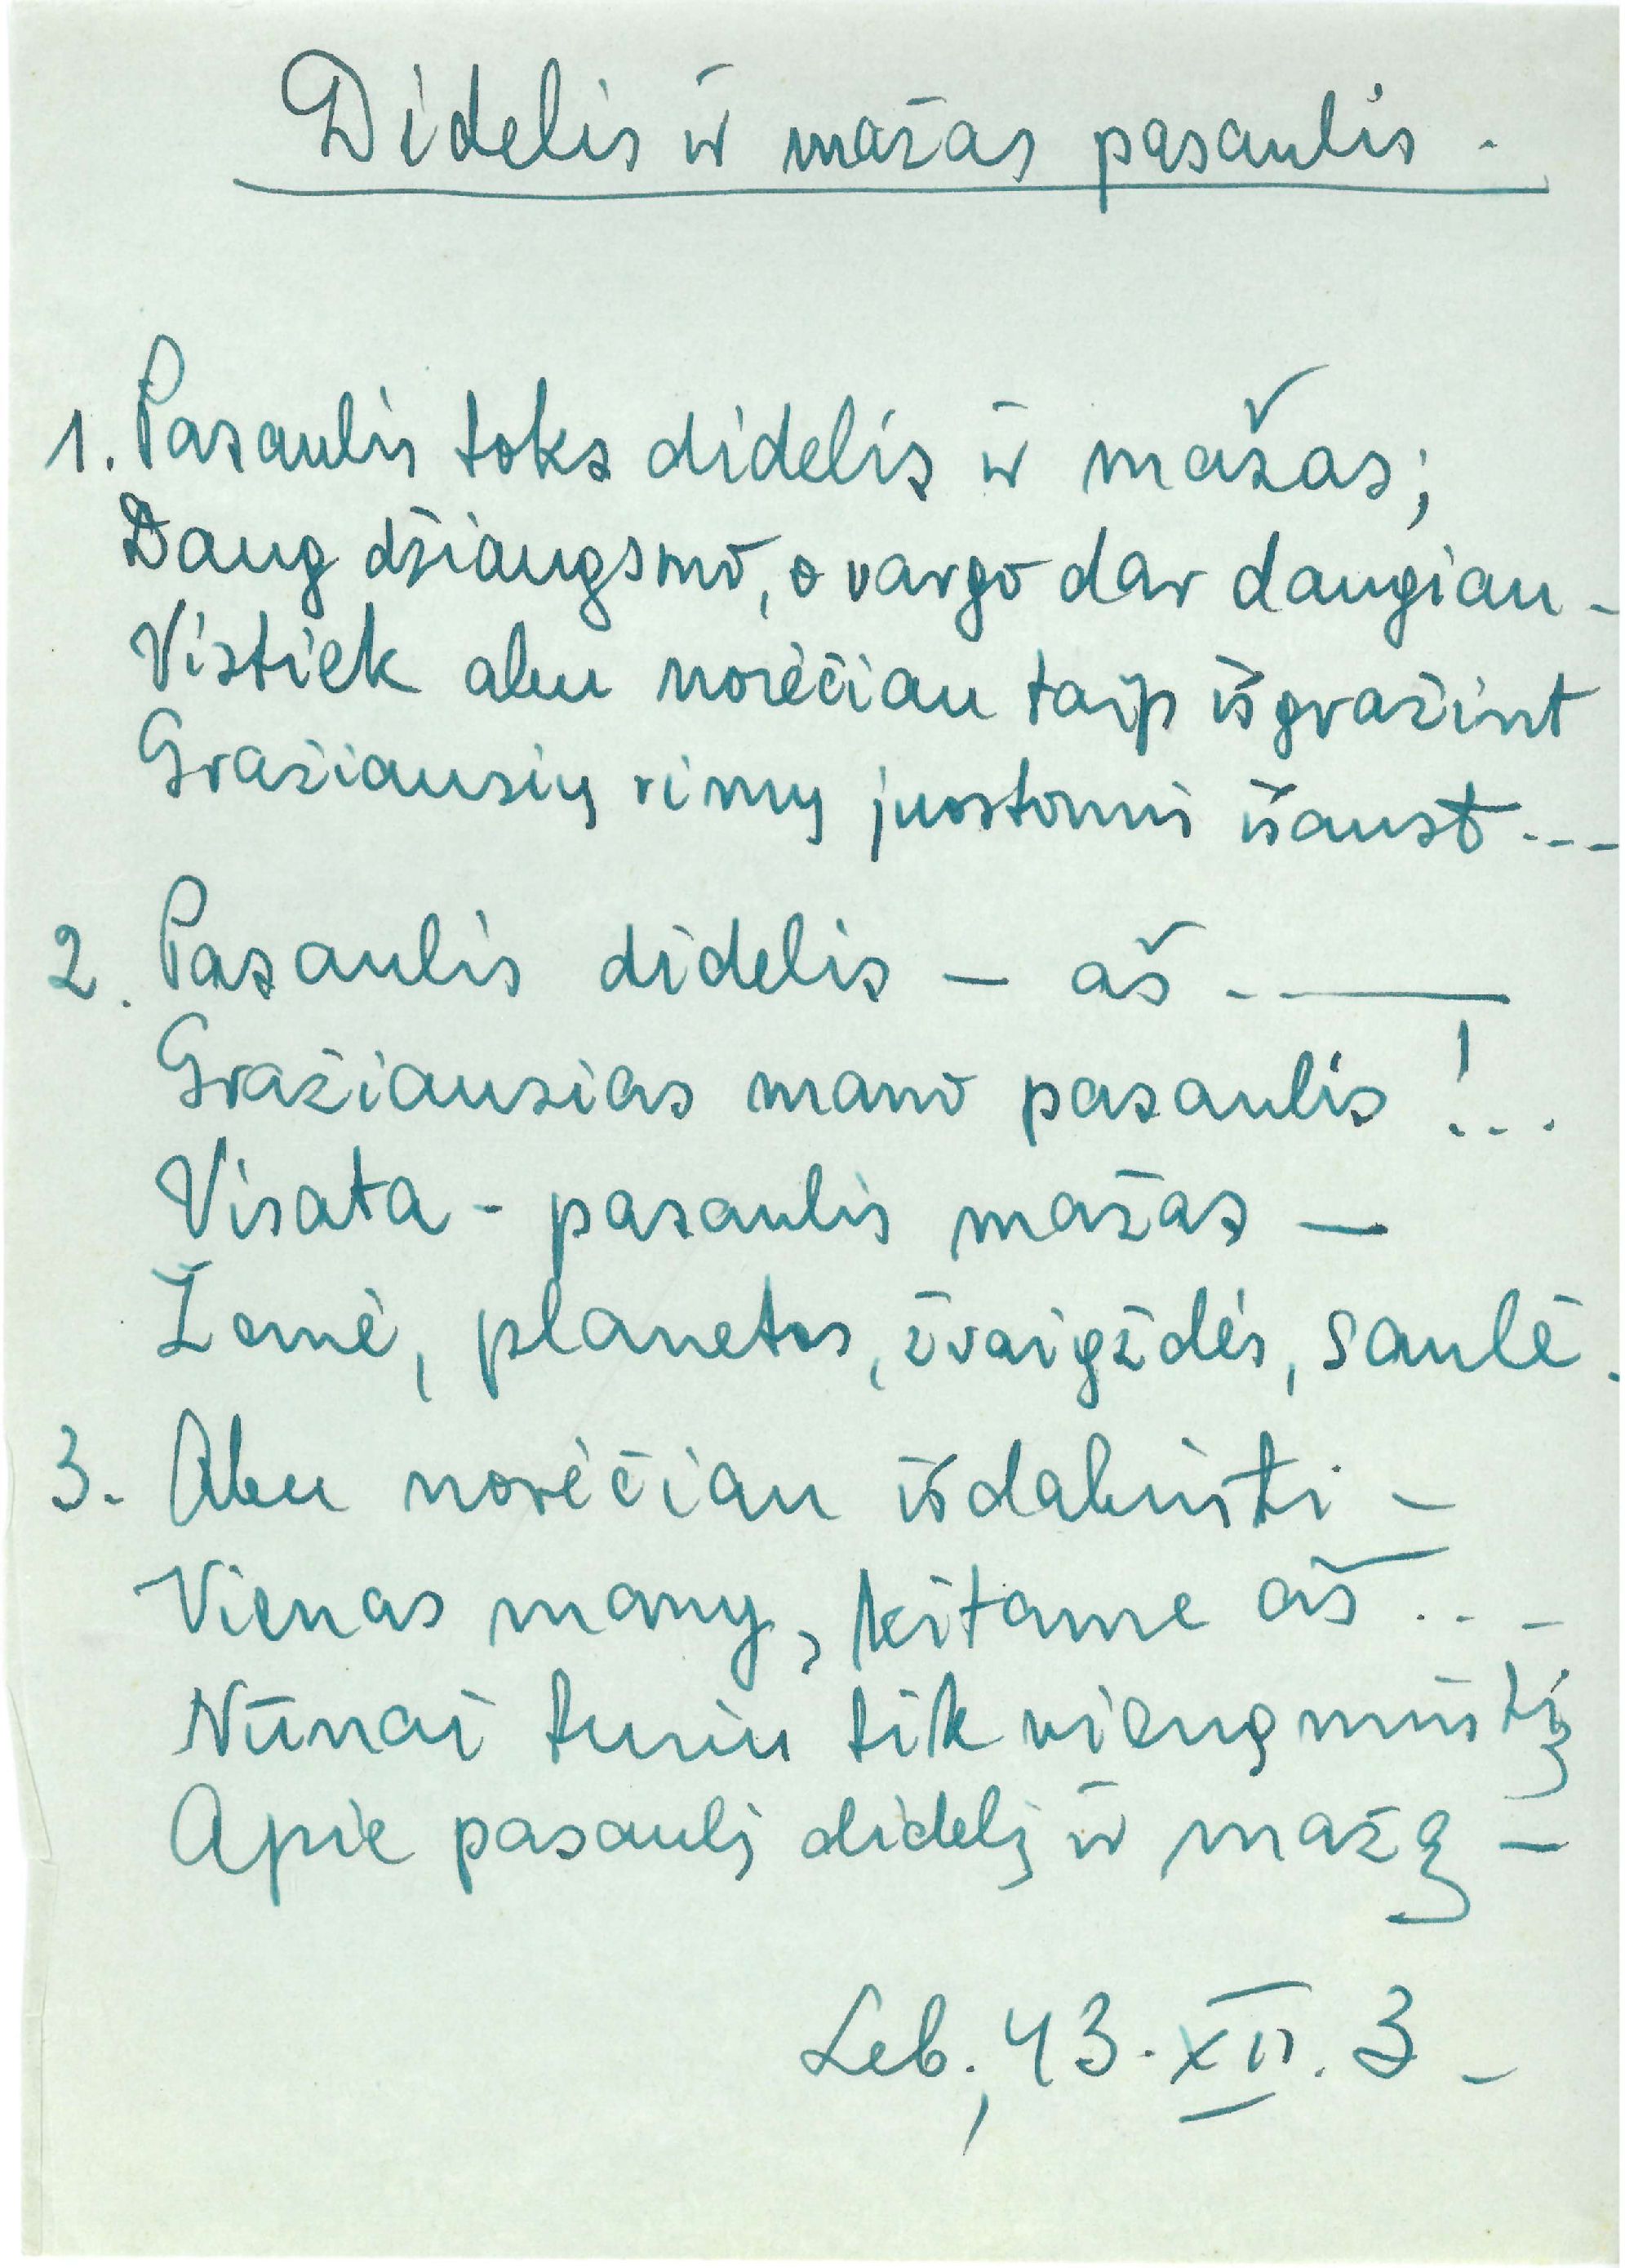 Didelis ir mažas pasaulis.
1. Pasaulis toks didelis ir mažas;
Daug džiaugsmo, o vargo dar daugiau -
Vistiek abu norėčiau taip išgražint
Gražiausių rimų juostomis išaust...
2. Pasaulis didelis — aš . . ——
Gražiausias mano pasaulis!...
Visata - pasaulis mažas —
Žemė, planetos, žvaigždės, saulė.
3. Abu norėčiau išdabinti —
Vienas many, kitame aš . . –
Nūnai turiu tik vieną mintį
Apie pasaulį didelį ir mažą —
Leb., 43. XII. 3 –